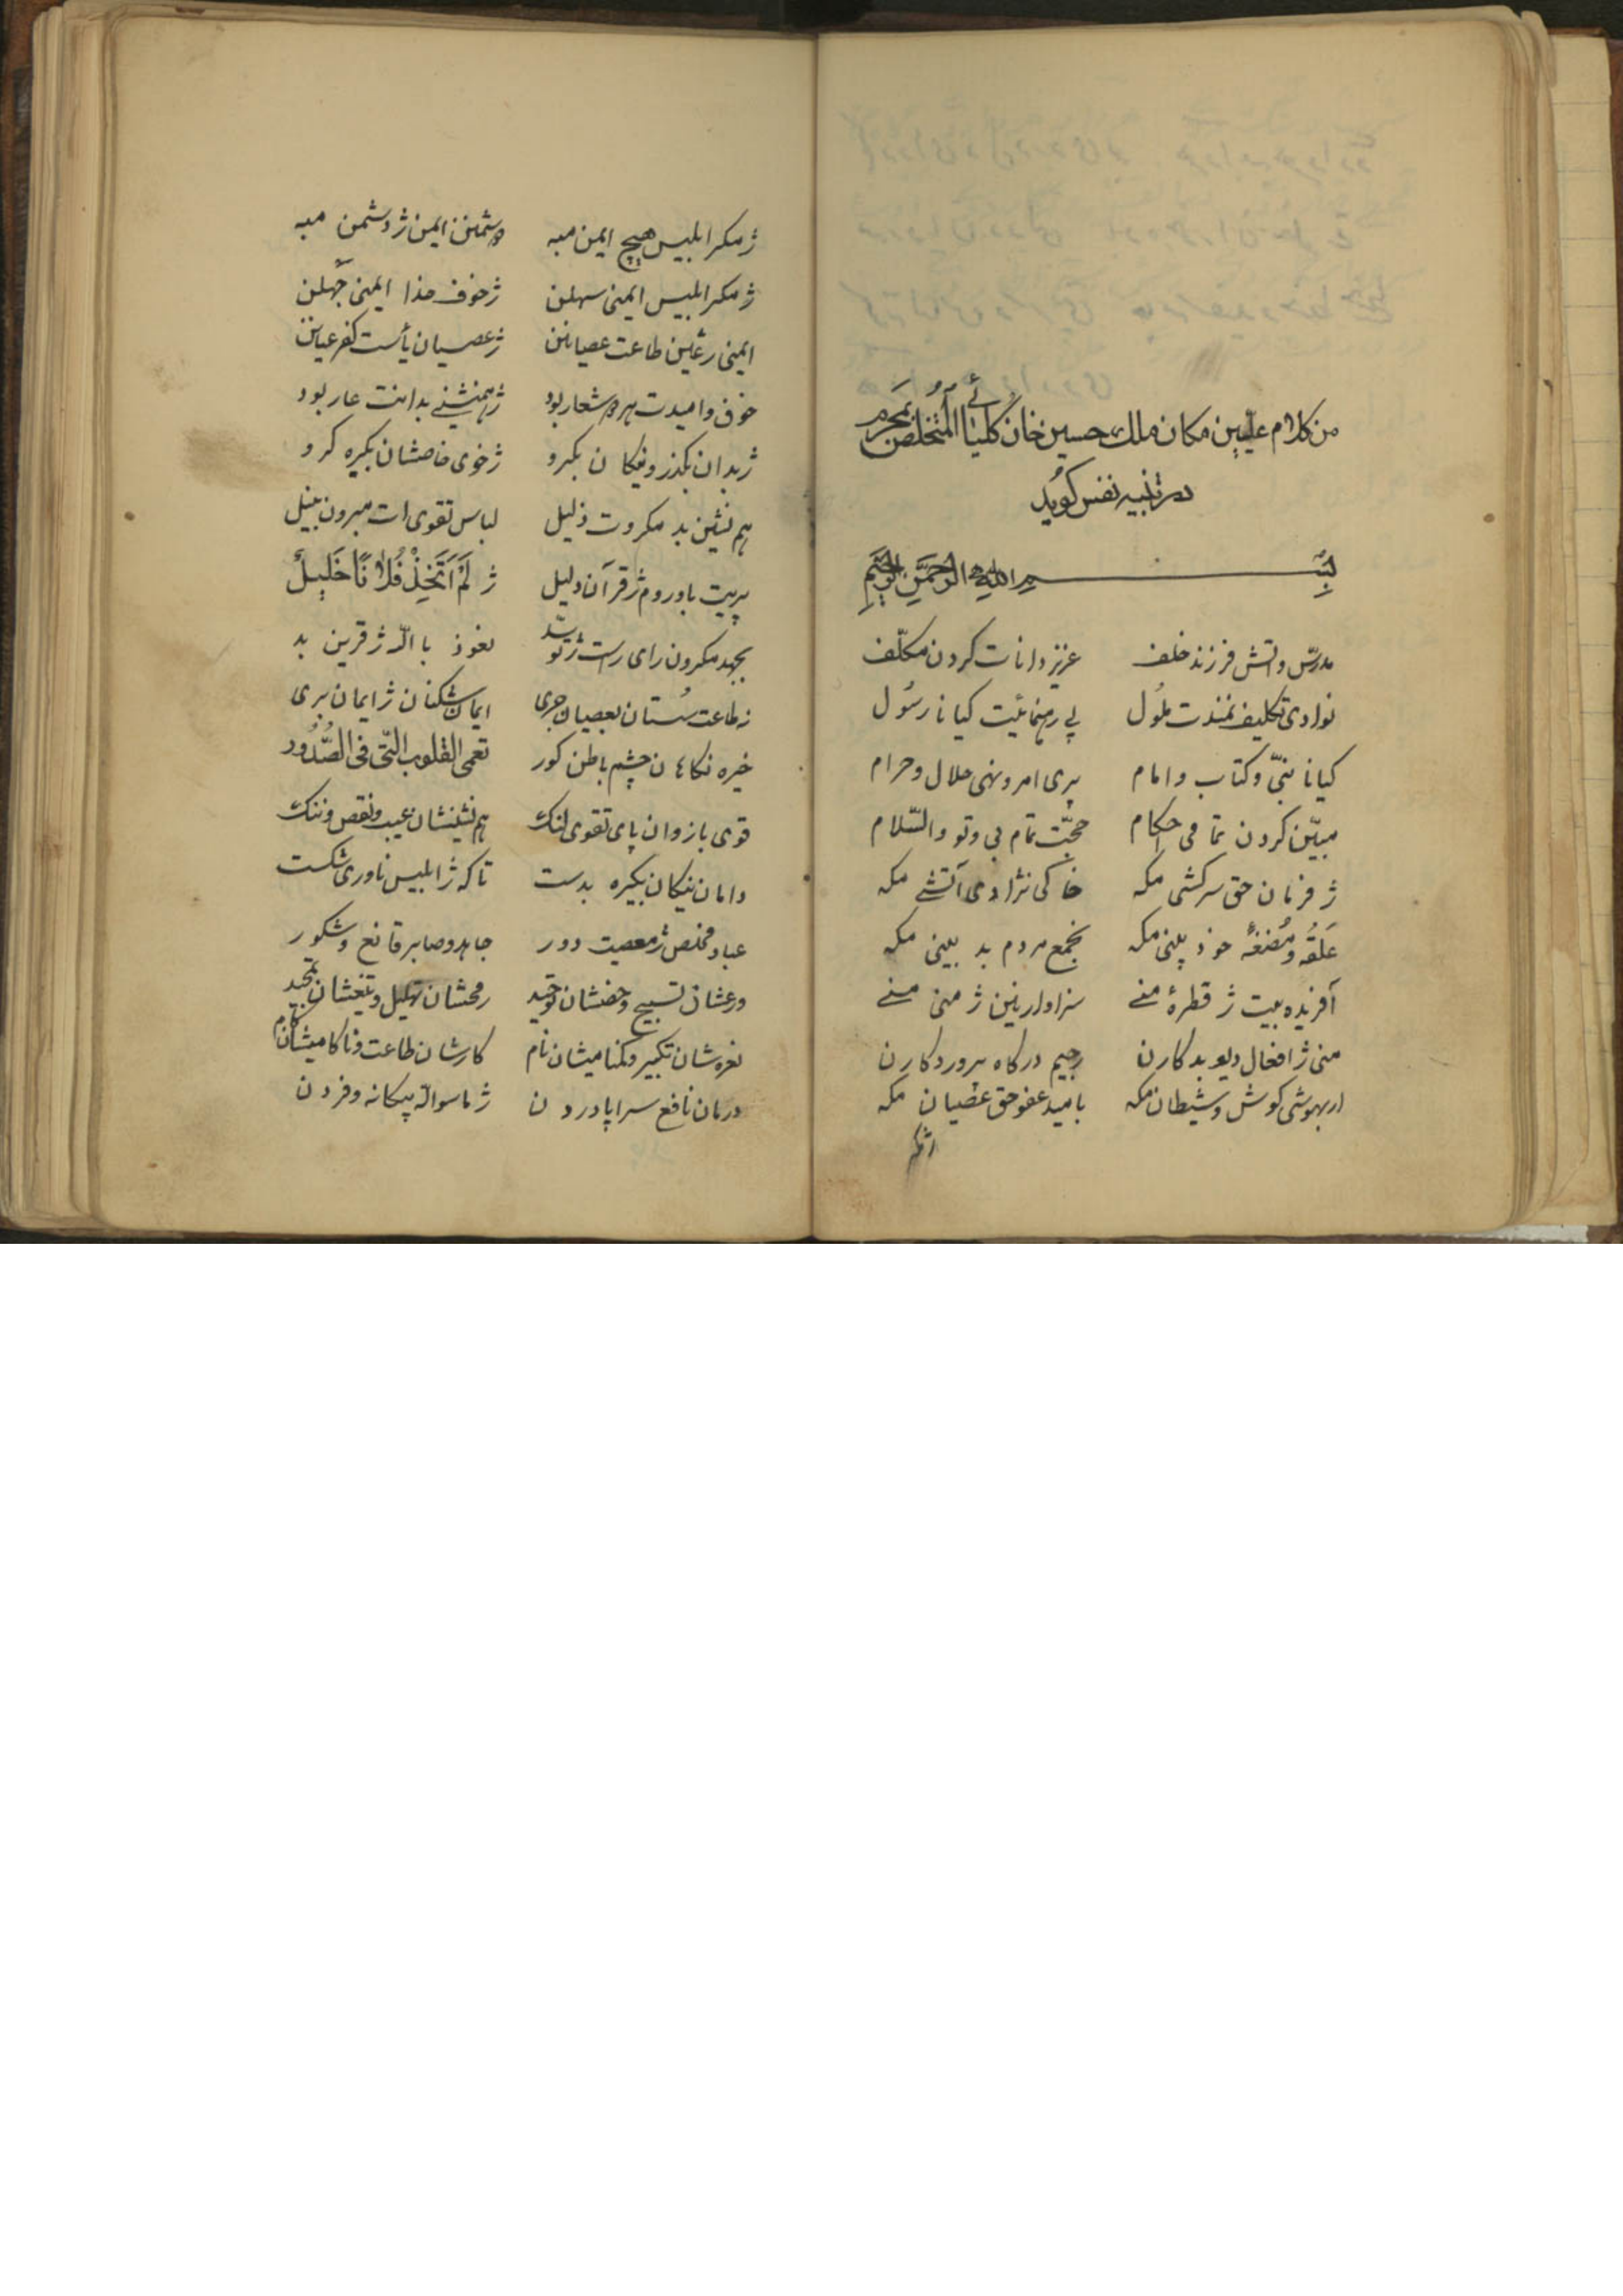 من کلام علیین مکان ملک حسین خان کلیائی المتخلص بمجرم
در تنبیه نفس کوید
بسم الله الرحمن الرحیم
مدرس واتش فرزند خلف عزیز دانات کردن مکلف
نوادی تکلیف نمندت ملول پی رهنمائیت کیانا رسول
کیانا نبی و کتاب و امام پری امر و نهی حلال و حرام
مبین کردن تمامی احکام حجت تمام بی و تو والسلام
ژ فرمان حق سرکشی مکه خاکی نژادی آتشے مکه
علقه و مضغهٔ خود بینی مکه بجمع مردم بد بینی مکه
آفریده بیت ژ قطرهٔ منے سزاوار نین ژ منی منے
منی ژ افعال دیو بدکارن رجیم درکاه پروردکارن
ار بهوشی کوش و شیطان مکه بامید عفو حق عصیان مکه
ژ مکر ابلیس هیچ ایمن مبه دشمنن ایمن ژ دشمن مبه
ژ مکر ابلیس ایمنی سهلن ژ خوف خدا ایمنی جهلن
ایمنی ژ عین طاعت عصیانن ژ عصیان یأست کفر عیانن
خوف و امیدت هر دو شعار بود ژ همنشنے بدانت عار بود
ژ بدان بکذر و نیکان بکرو ژ خوی خاصشان بکیره کرو
هم نشین بد مکروت ذلیل لباس تقوی ات مبرون بنیل
پریت باوروم ژ قرآن دلیل ژ لم اتخذ فلانا خلیل
بجهد مکرون رای راست ژ تو سد نعوذ بالله ژ قرین بد
نه طاعت سستان بعصیان جری ایمان شکنان ژ ایمان بری
خیره نکاهان چشم باطن کور تعمی القلوب التی فی الصدور
قوی بازوان پای تقوی لنک هم نشینشان عیب و نقص و ننک
دامان نیکان بکیره بدست تا که ژ ابلیس ناوری شکست
عباد مخلص ژ معصیت دور جاهد و صابر قانع و شکور
درعشان تسبیح و خضشان توحید رمحشان تهلیل و تیغشان تمجید
نعره شان تکبیر و کمنامیشان نام کارشان طاعت و ناکامیشان کام
درمان نافع سراپا دردن ژ ماسوالله بیکانه و فردن